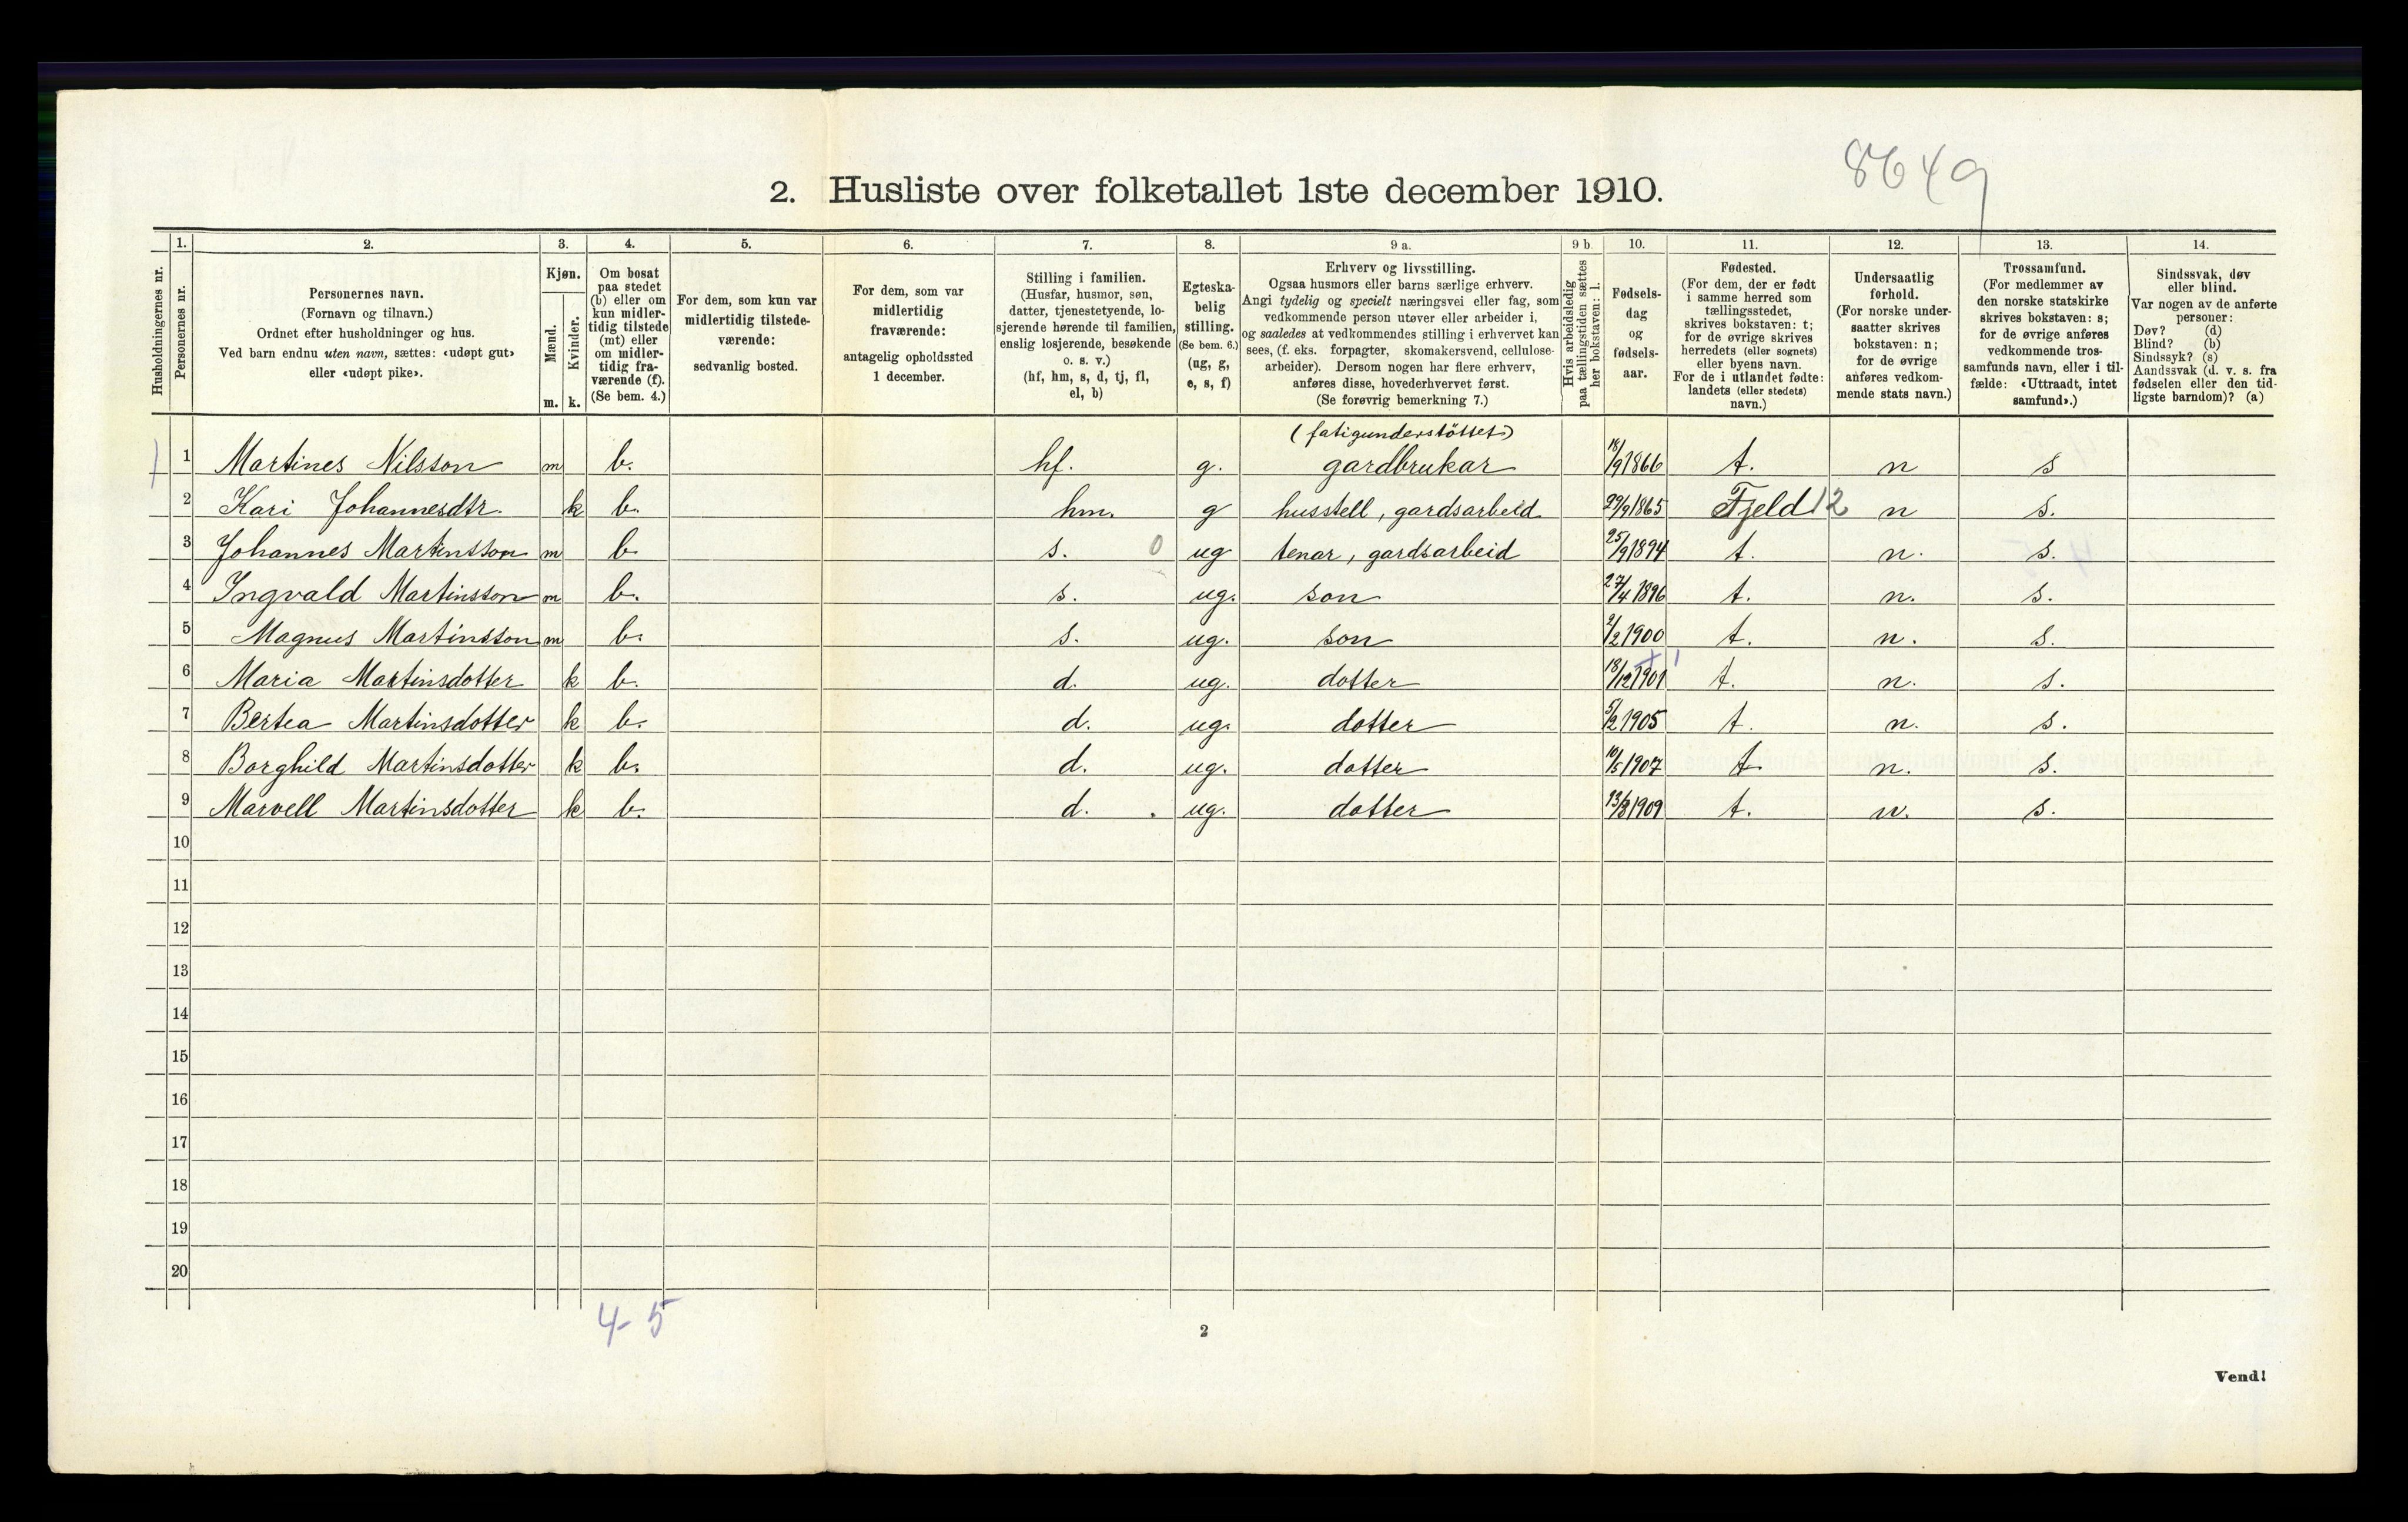 8649
2. Husliste over folketallet 1ste december 1910.
Husholdningernes nr.
1. Personernes nr.
2. Personernes navn.
(Fornavn og tilnavn.)
Ordnet efter husholdninger og hus.
Ved barn endnu uten navn, sættes: «udøpt gut»
eller «udøpt pike».
3. Kjøn.
Mænd. m.
Kvinder. k.
4. Om bosat
paa stedet
(b) eller om
kun midler-
tidig tilstede
(mt) eller
om midler-
tidig fra-
værende (f).
(Se bem. 4.)
5. For dem, som kun var
midlertidig tilstede-
værende:
sedvanlig bosted.
6. For dem, som var
midlertidig
fraværende:
antagelig opholdssted
1 december.
7. Stilling i familien.
(Husfar, husmor, søn,
datter, tjenestetyende, lo-
sjerende hørende til familien,
enslig losjerende, besøkende
o. s. v.)
(hf, hm, s, d, tj, fl,
el, b)
8. Egteska-
belig
stilling.
(Se bem. 6.)
(ug, g,
e, s, f)
9 a. Erhverv og livsstilling.
Ogsaa husmors eller barns særlige erhverv.
Angi tydelig og specielt næringsvei eller fag, som
vedkommende person utøver eller arbeider i,
og saaledes at vedkommendes stilling i erhvervet kan
sees, (f. eks. forpagter, skomakersvend, cellulose-
arbeider). Dersom nogen har flere erhverv,
anføres disse, hovederhvervet først.
(Se forøvrig bemerkning 7.)
9 b. Hvis arbeidsledig
paa tællingstiden sættes
her bokstaven: l.
10. Fødsels-
dag
og
fødsels-
aar.
11. Fødested.
(For dem, der er født
i samme herred som
tællingsstedet,
skrives bokstaven: t;
for de øvrige skrives
herredets (eller sognets)
eller byens navn.
For de i utlandet fødte:
landets (eller stedets)
navn.)
12. Undersaatlig
forhold.
(For norske under-
saatter skrives
bokstaven: n;
for de øvrige
anføres vedkom-
mende stats navn.)
13. Trossamfund.
(For medlemmer av
den norske statskirke
skrives bokstaven: s;
for de øvrige anføres
vedkommende tros-
samfunds navn, eller i til-
fælde: «Uttraadt, intet
samfund».)
14. Sindssvak, døv
eller blind.
Var nogen av de anførte
personer:
Døv? (d)
Blind? (b)
Sindssyk? (s)
Aandssvak (d. v. s. fra
fødselen eller den tid-
ligste barndom)? (a)
(fatigunderstöttet)
1 Martines Nilsson m b. hf. g. gardbrukar 18/9 1866 t. n s
2 Kari Johannesdtr. k b. hm. g husstell, gardsarbeid 29/9 1865 Fjeld 12 n s.
3 Johannes Martinsson m b. s. 0 ug tenar, gardsarbeid 25/9 1894 t. n. s.
4 Ingvald Martinsson m b. s. ug. son 27/4 1896 t. n. s.
5 Magnus Martinsson m b. s. ug. son 2/2 1900 t. n. s.
6 Maria Martinsdotter k b. d. ug. dotter 18/12 1901 t. n. s.
7 Bertea Martinsdotter k b. d. ug. dotter 5/2 1905 t. n. s.
8 Borghild Martinsdotter k b. d. ug. dotter 10/5 1907 t. n. s.
9 Marvell Martinsdotter k b. d. ug. dotter 13/8 1909 t. n. s.
10
11
12
13
14
15
16
17
18
19
20
4-5
2
Vend!